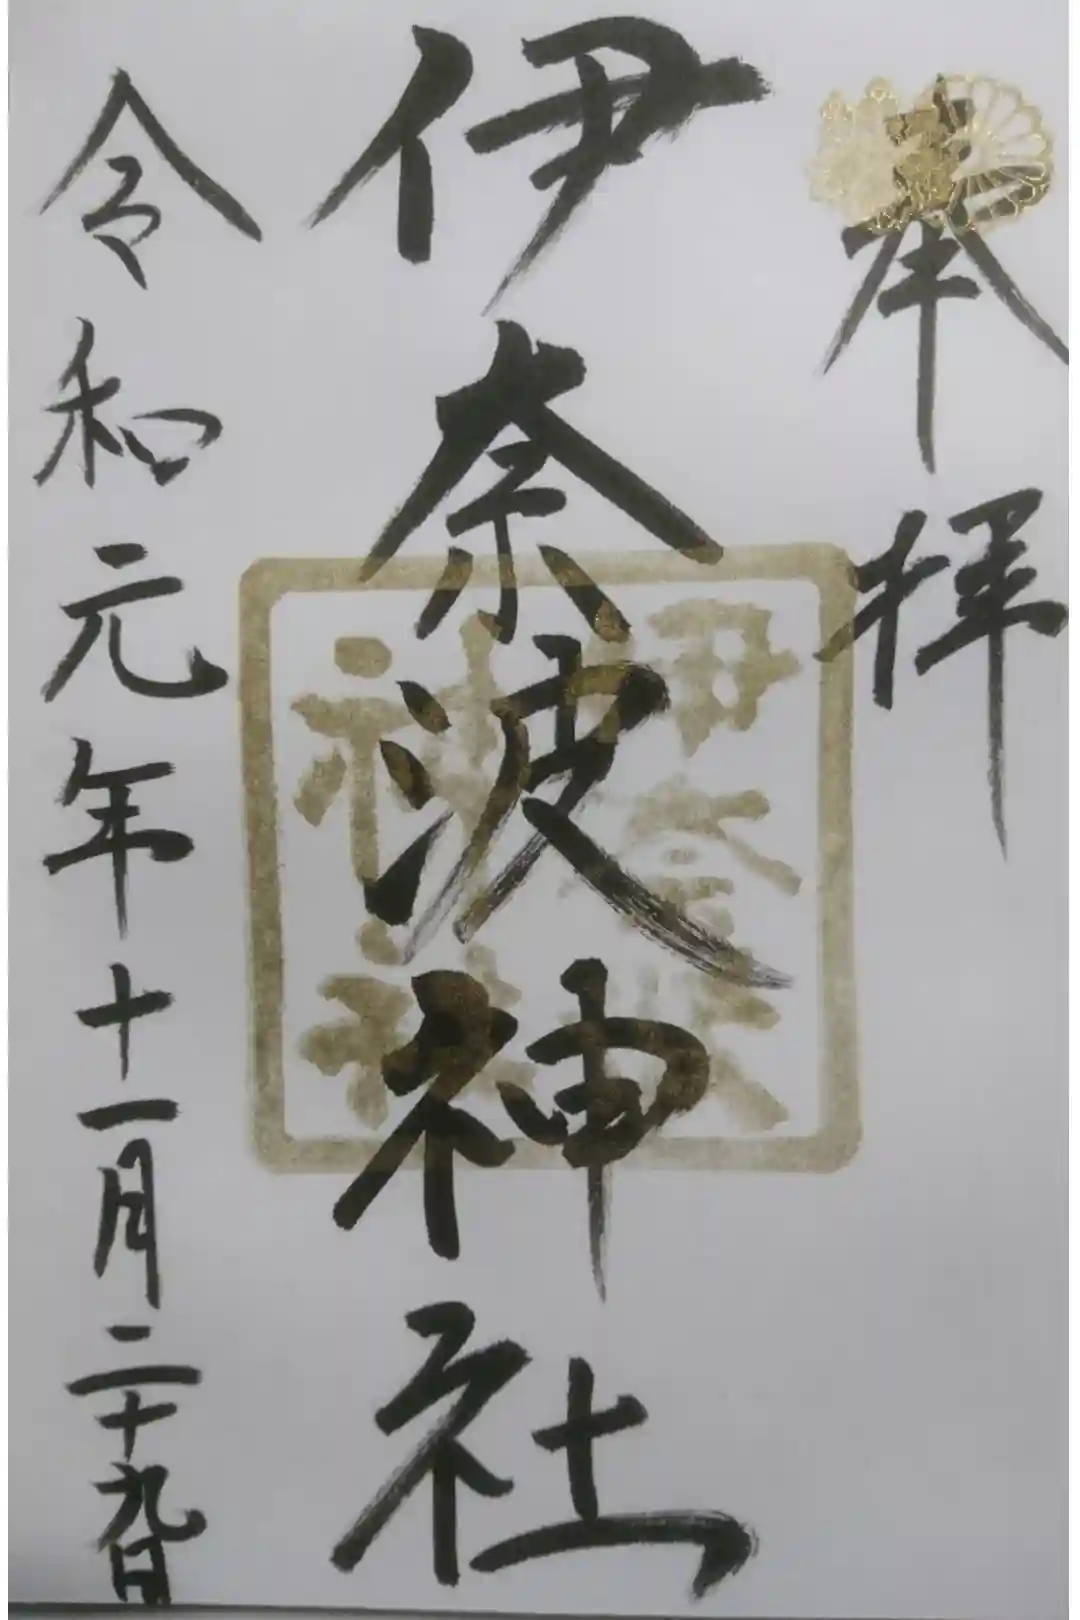 奉拝
伊奈波神社
伊奈波
神社
令和元年十一月二十九日